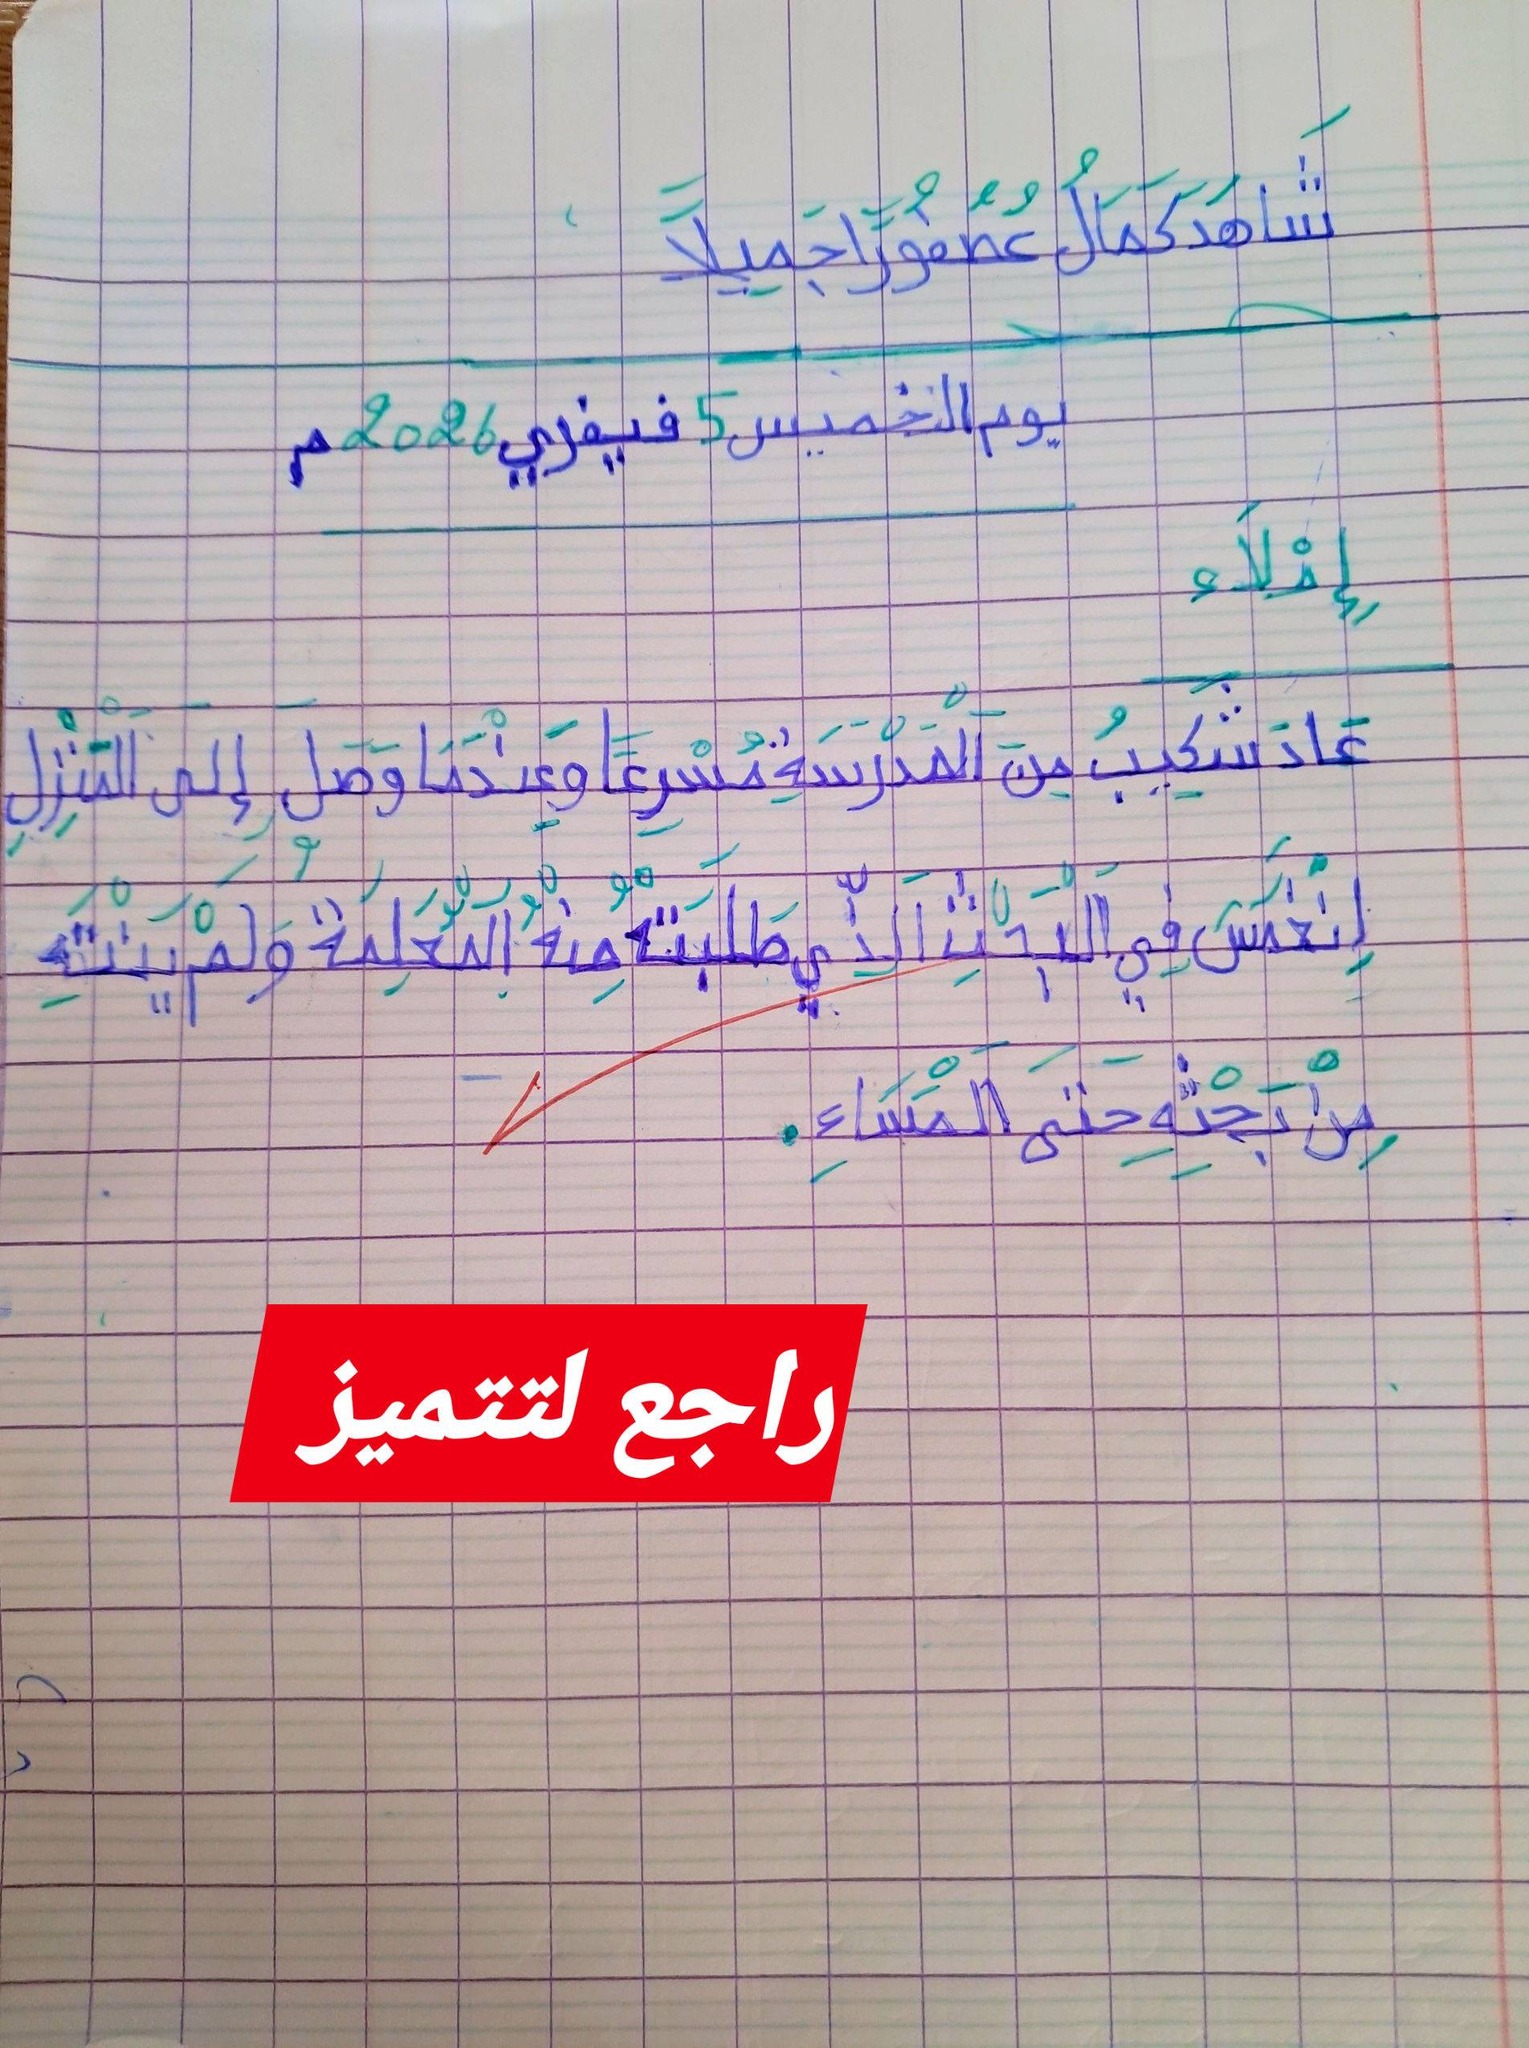 شَاهَدَ كَمَالُ عُصْفُورًا جَمِيلًا
يوم الخميس 5 فيفري 2026 م
إِمْلَاء
عَادَ شَكِيبُ مِنَ الْمَدْرَسَةِ مُسْرِعًا وَعِنْدَمَا وَصَلَ إِلَى الْمَنْزِلِ
اِنْغَمَسَ فِي الْبَحْثِ الَّذِي طَلَبَتْهُ مِنْهُ الْمُعَلِمَةُ وَلَمْ يَنْتَهِ
مِنْ بَحْثِهِ حَتَى الْمَسَاءِ.
راجع لتتميز